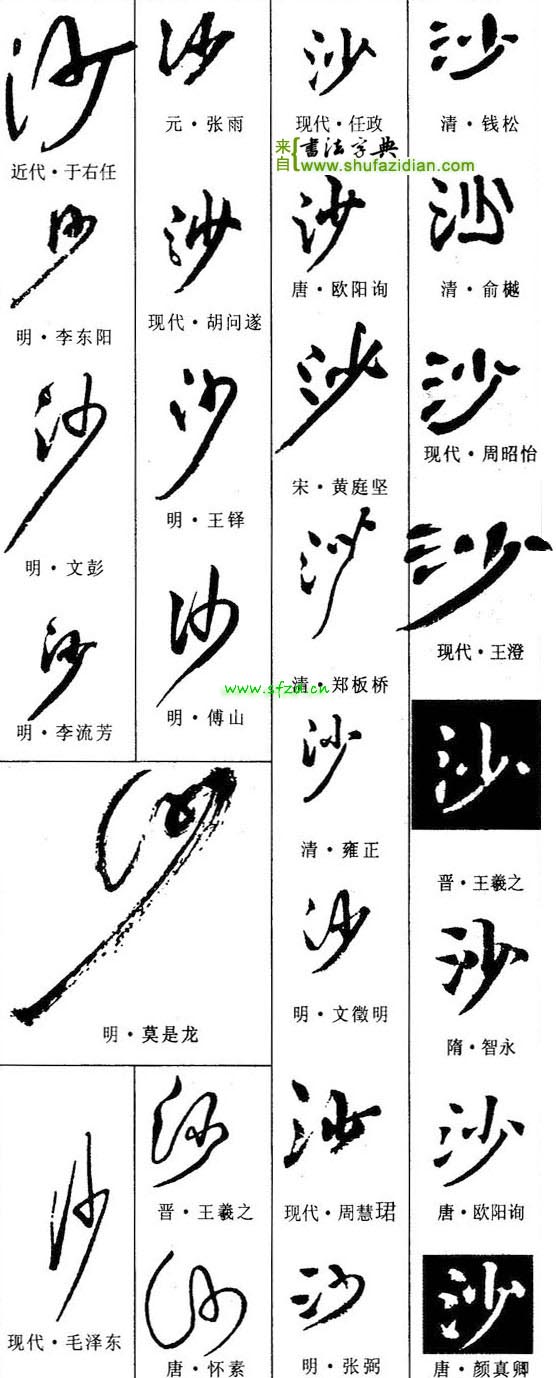 沙
近代·于右任
沙
明·李东阳
沙
明·文彭
沙
明·李流芳
沙
元·张雨
沙
现代·胡问遂
沙
明·王铎
沙
明·傅山
沙
明·莫是龙
沙
现代·毛泽东
沙
晋·王羲之
沙
唐·怀素
沙
现代·任政
来自{书法字典
www.shufazidian.com
沙
唐·欧阳询
沙
宋·黄庭坚
沙
清·郑板桥
www.sfzd.cn
沙
清·雍正
沙
明·文徵明
沙
现代·周慧珺
沙
明·张弼
沙
清·钱松
沙
清·俞樾
沙
现代·周昭怡
沙
现代·王澄
沙
晋·王羲之
沙
隋·智永
沙
唐·欧阳询
沙
唐·颜真卿